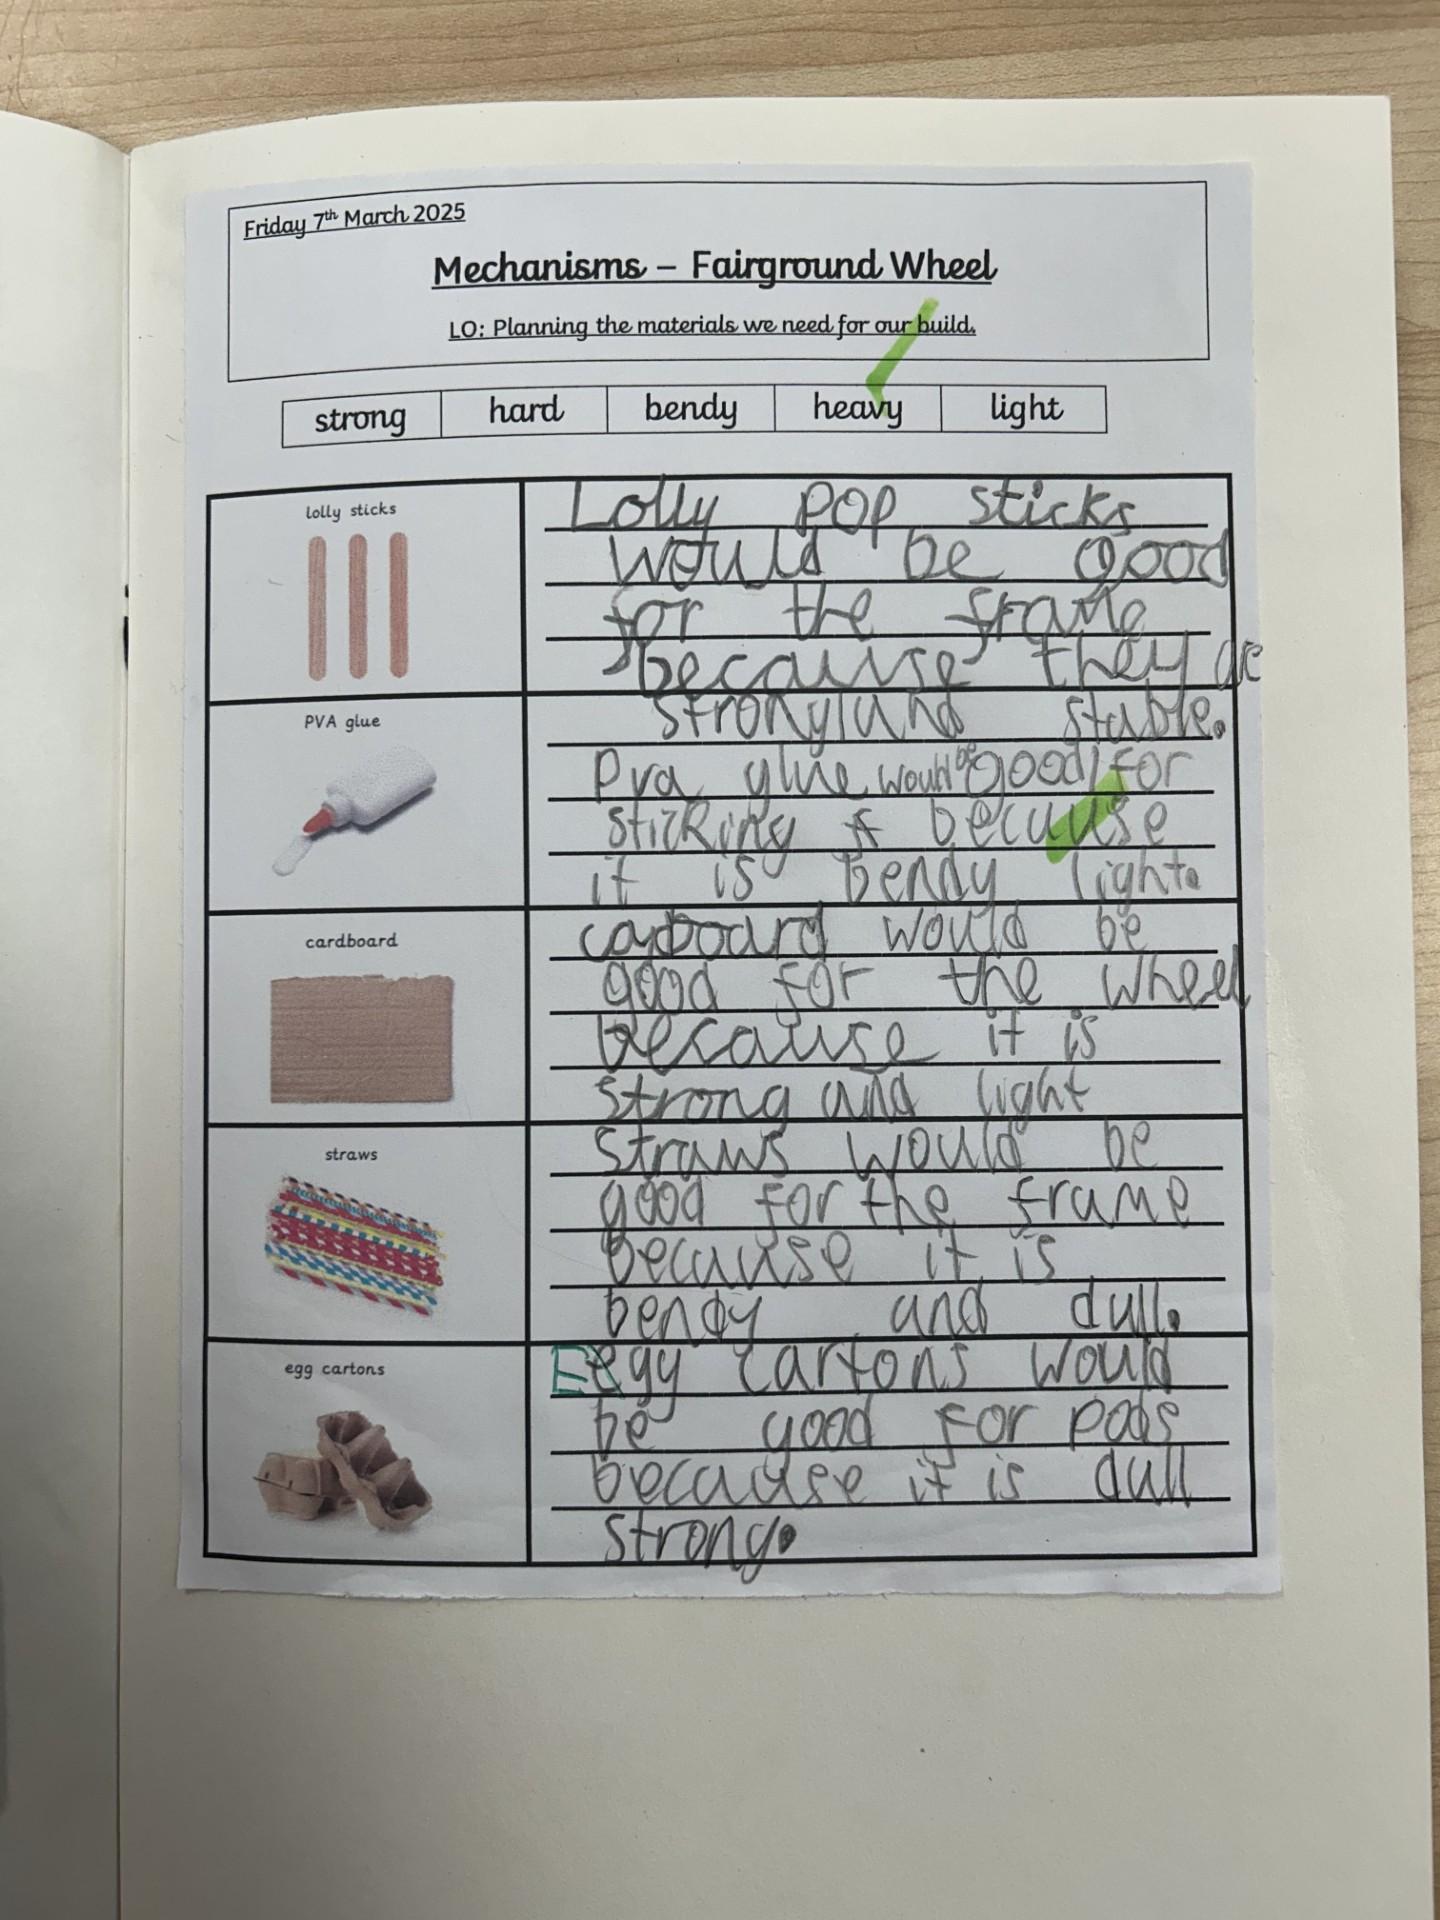 Friday 7th March 2025
Mechanisms – Fairground Wheel
LO: Planning the materials we need for our build.
strong hard bendy heavy light
lolly sticks
Lolly pop sticks
would be good
for the frame
because they are
strong and stable.
PVA glue
Pva glue would be good for
sticking because
it is bendy light.
cardboard
carboard would be
good for the wheel
because it is
strong and light
straws
straws would be
good for the frame
because it is
bendy and dull.
egg cartons
Eegg cartons would
be good for pods
because it is dull
strong.